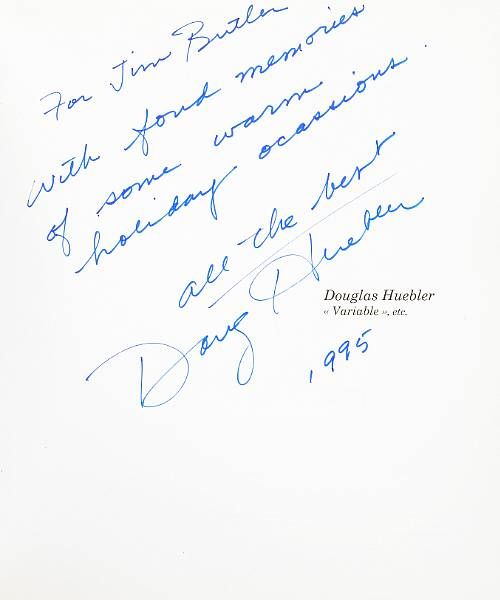 For Jim Butler
with fond memories
of some warm
holiday ocassions.
all the best
Doug Huebler
Douglas Huebler
« Variable », etc.
1995